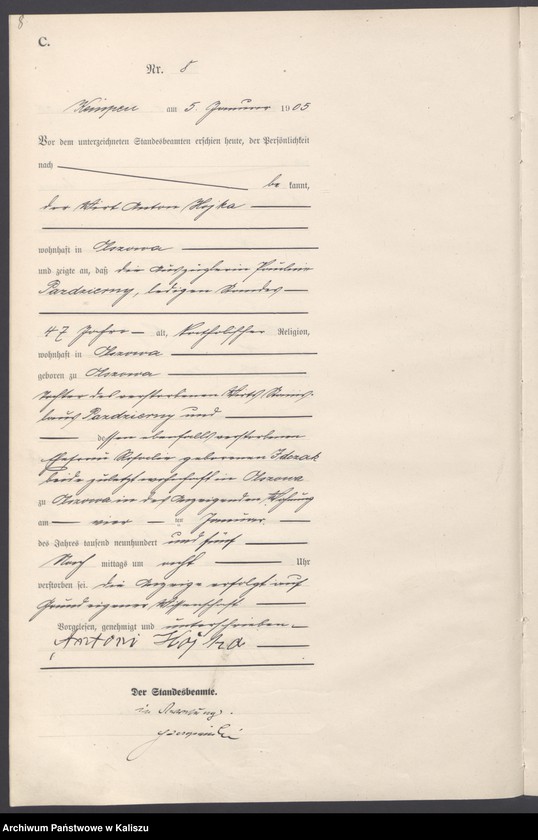 8
C.
Nr. 8
Kempen am 5. Januar 1905
Vor dem unterzeichneten Standesbeamten erschien heute, der Persönlichkeit
nach
be kannt,
der Wirt Anton Hojka
wohnhaft in Olszowa
und zeigte an, daß die Auszüglerin Pauline
Pazdzierny, ledigen Standes
47 Jahre alt, katholischer Religion,
wohnhaft in Olszowa
geboren zu Olszowa
Tochter des verstorbenen Wirth Stanis-
laus Pazdzierny und
dessen ebenfalls verstorbenen
Ehefrau Rosalie geborenen Idczak
beide zuletzt wohnhaft in Olszowa
zu Olszowa in des Anzeigenden Wohnung
am vier ten Januar
des Jahres tausend neunhundert und fünf
Nach mittags um acht Uhr
verstorben sei. Die Anzeige erfolgt auf
Grund eigener Wissenschaft
Vorgelesen, genehmigt und unterschrieben
Antoni Hojka
Der Standesbeamte.
in Vertretung.
Archiwum Państwowe w Kaliszu